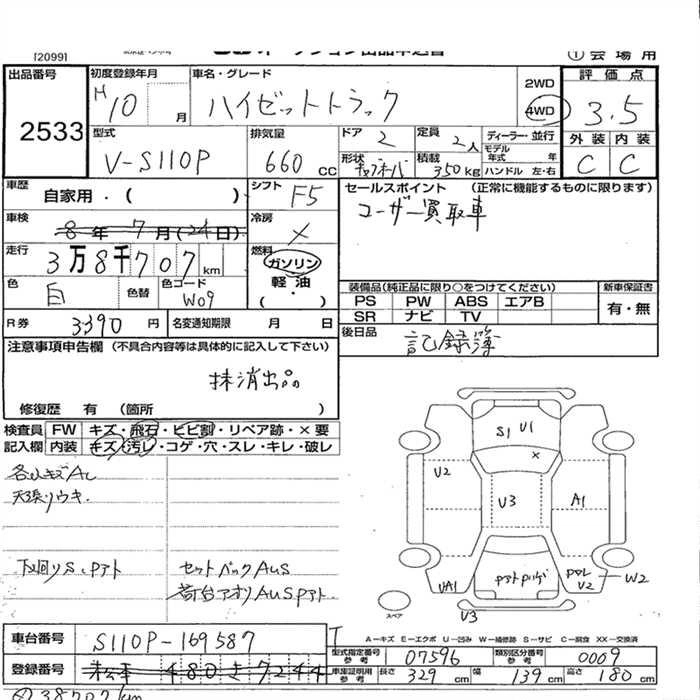 [2099]
① 会場用
出品番号
2533
初度登録年月
H10 月
車名・グレード
ハイゼットトラック
2WD
4WD
評価点
3.5
型式
V-S110P
排気量
660 cc
ドア 2
定員 2人
ディーラー・並行
モデル年式 年
形状
積載 350kg
ハンドル 左・右
外装 内装
C C
車歴
自家用・( )
シフト F5
セールスポイント (正常に機能するものに限ります)
ユーザー買取車
車検
8年7月(24日)
冷房 ×
走行
3万8千707km
燃料
ガソリン
軽油
( ・ )
色 白
色替
色コード W09
装備品(純正品に限り○をつけてください)
新車保証書
PS PW ABS エアB
SR ナビ TV
有・無
R券 3390円
名変通知期限 月 日
後日品
記録簿
注意事項申告欄 (不具合内容等は具体的に記入して下さい)
抹消出品
修復歴 有 (箇所 )
検査員 FW キズ・飛石・ヒビ割・リペア跡・×要
記入欄 内装 キズ・汚レ・コゲ・穴・スレ・キレ・破レ
天張リウキ.
下廻りS.Pアト
セットバックAUS
荷台アオリAUSPアト.
S1 U1
×
U2
U3
A1
UA1
U2
W2
U3
スペア
A－キズ E－エクボ U－凹み W－補修跡 S－サビ C－腐食 XX－交換済
車台番号
S110P-169587
型式指定番号 参考
07596
類別区分番号 参考
0009
登録番号
480 き 7244
車庫証明用 参考
長さ 329 cm
幅 139 cm
高さ 180 cm
38707km